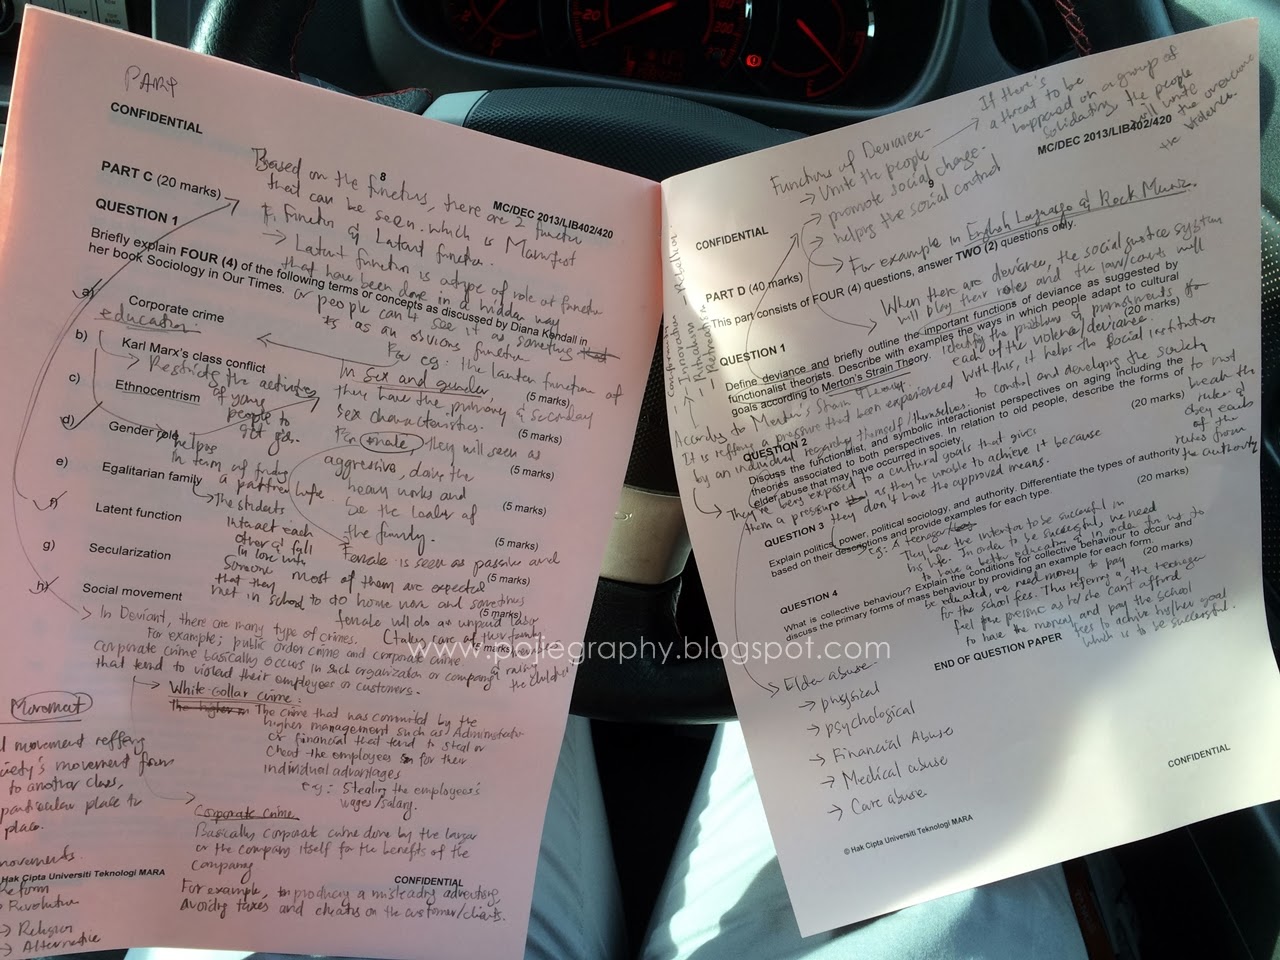 PART
CONFIDENTIAL
8
MC/DEC 2013/LIB402/420
PART C (20 marks)
QUESTION 1
Briefly explain FOUR (4) of the following terms or concepts as discussed by Diana Kendall in
her book Sociology in Our Times.
a) Corporate crime
(5 marks)
b) Karl Marx's class conflict
(5 marks)
c) Ethnocentrism
(5 marks)
d) Gender role
(5 marks)
e) Egalitarian family
(5 marks)
f) Latent function
(5 marks)
g) Secularization
(5 marks)
h) Social movement
(5 marks)
Based on the functions, there are 2 function
that can be seen. which is Manifest
Function & Latent function.
→ Latent function is a type of role of function
that have been done in a hidden way
or people can't see it as something
as an obvious function
For eg: the lanten function of
education.
→ Restricts the activities
of young
people to
get jobs.
helps
In term of finding
a partner/wife
The students
Interact each
other & fall
In love with
someone
that they
met in school
In sex and gender,
they have the primary & secondary
sex characteristics.
For male, they will seen as
aggressive, doing the
heavy works and
be the leader of
the family.
Female is seen as passive and
most of them are expected
to do home work and sometimes
female will do as unpaid jobs
(take care of their family
& raising
the children)
→ In Deviant, there are many type of crimes.
For example; public order crime and corporate crime.
corporate crime basically occurs in such organization or company
that tend to violated their employees or customers.
→ White-Collar crime:
The higher
The crime that was committed by the
higher management such as Administrator
or financial that tend to steal or
cheat the employees for their
individual advantages
eg: Stealing the employees's
wages/salary.
Corporate crime.
Basically corporate crime done by the larger
or the company itself for the benefits of the
company
For example, producing a misleading advertising
Avoiding taxes and cheating on the customer/clients.
Movement
movement reffering
movement from
to another class,
particular place to
place.
movements.
Hak Cipta Universiti Teknologi MARA
CONFIDENTIAL
Reform
→ Revolution
→ Religion
→ Alternative
CONFIDENTIAL
9
MC/DEC 2013/LIB402/420
Functions of Deviance-
→ Unite the people
→ promote social change.
→ helping the social control
→ If there's
a threat to be
happened on a group of
solidating, the people
will unite
to overcome
the violence.
→ For example in English Language & Rock Music.
→ When there are deviance, the social justice system
will play their roles and the law/courts will
identify the problems of punishments for
each of the violence/deviance.
With this, it helps the social institution
to control and developing the society
to not
break the
rules &
obey each
of the
rules from
the authority
PART D (40 marks)
This part consists of FOUR (4) questions, answer TWO (2) questions only.
QUESTION 1
Define deviance and briefly outline the important functions of deviance as suggested by
functionalist theorists. Describe with examples the ways in which people adapt to cultural
goals according to Merton's Strain Theory.
(20 marks)
QUESTION 2
Discuss the functionalist, and symbolic interactionist perspectives on aging including the
theories associated to both perspectives. In relation to old people, describe the forms of
elder abuse that may have occurred in society.
(20 marks)
QUESTION 3
Explain politics, power, political sociology, and authority. Differentiate the types of authority
based on their descriptions and provide examples for each type.
(20 marks)
QUESTION 4
What is collective behaviour? Explain the conditions for collective behaviour to occur and
discuss the primary forms of mass behaviour by providing an example for each form.
(20 marks)
END OF QUESTION PAPER
→ Conformity
→ Innovation
→ Ritualism
→ Retreatism
→ Rebellion
According to Merton's Strain Theory.
It is reffering a pressure that been experienced
by an individual regarding themself/themselves.
→ They're being exposed to a cultural goals that gives
them a pressure as they're unable to achieve it because
they don't have the approved means.
eg: A teenager
They have the intention to be successful in
his life. In order to be successful, we need
to have a better education & in order for us to
be educated, we need money to pay
for the school fees. This referring a the teenager
feel the pressure as he/she can't afford
to have the money and pay the school
fees to achieve his/her goal
which is to be successful.
→ Elder abuse-
→ physical
→ psychological
→ Financial Abuse
→ Medical abuse
→ Care abuse
CONFIDENTIAL
© Hak Cipta Universiti Teknologi MARA
www.pojiegraphy.blogspot.com